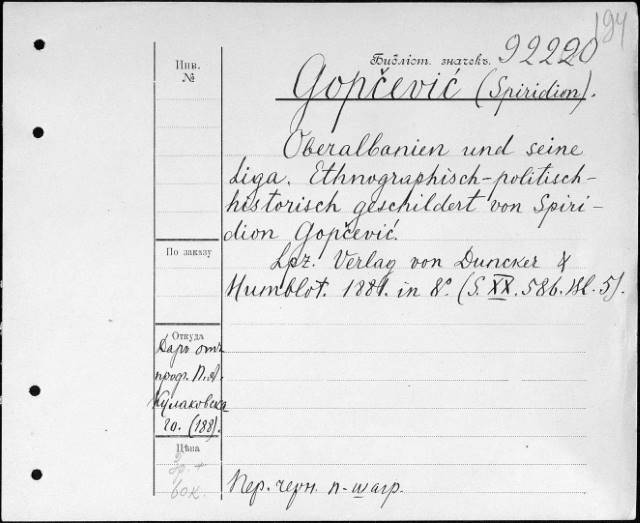 194
Инв.
№
Библіот. значекъ. 92220
Gopčević (Spiridion).
Oberalbanien und seine
Liga. Ethnographisch-politisch-
historisch geschildert von Spiri-
dion Gopčević.
Lpz. Verlag von Duncker &
Humblot. 1881. in 8º. (S. XX. 586. Bl. 5).
По заказу
Откуда
Даръ отъ
проф. П.А.
Кулаковска
го. (188).
Цѣна
3р. +
60к.
Пер. черн. п-шагр.